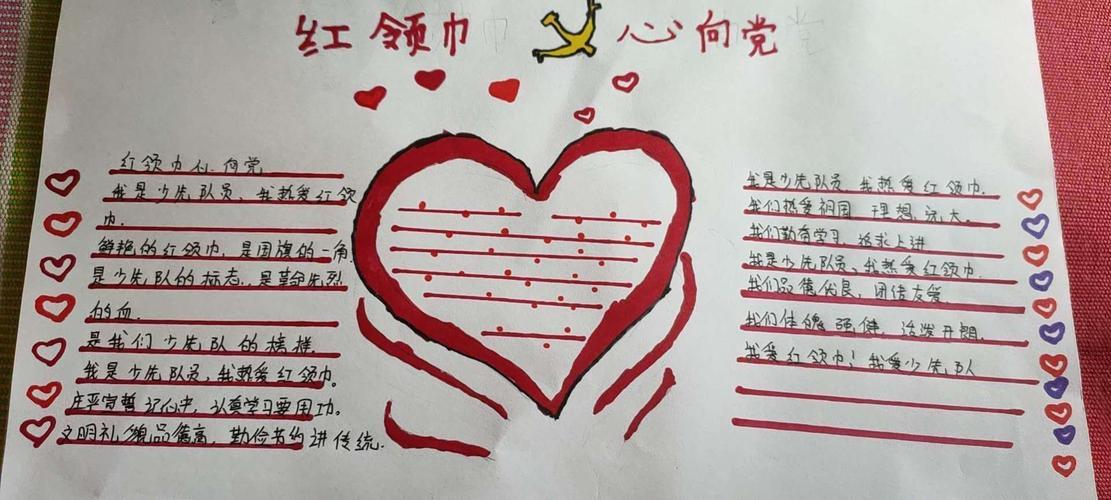 红领巾 心向党
红领巾心向党
我是少先队员、我热爱红领
巾.
鲜艳的红领巾,是国旗的一角.
是少先队的标志.是革命先烈
的血.
是我们少先队的榜样.
我是少先队员,我热爱红领巾。
庄严宣誓记心中,认真学习要用功。
文明礼貌品德高,勤俭节约讲传统.
我是少先队员,我热爱红领巾.
我们热爱祖国 理想远大.
我们勤奋学习,追求上进
我是少先队员,我热爱红领巾.
我们品德优良,团结友爱
我们体魄强健,活泼开朗.
我爱红领巾!我爱少先队